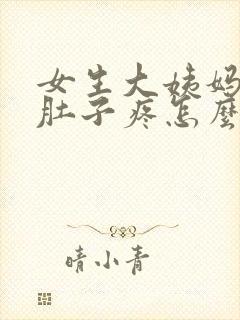 女生大姨妈
肚子疼怎麼
晴小青